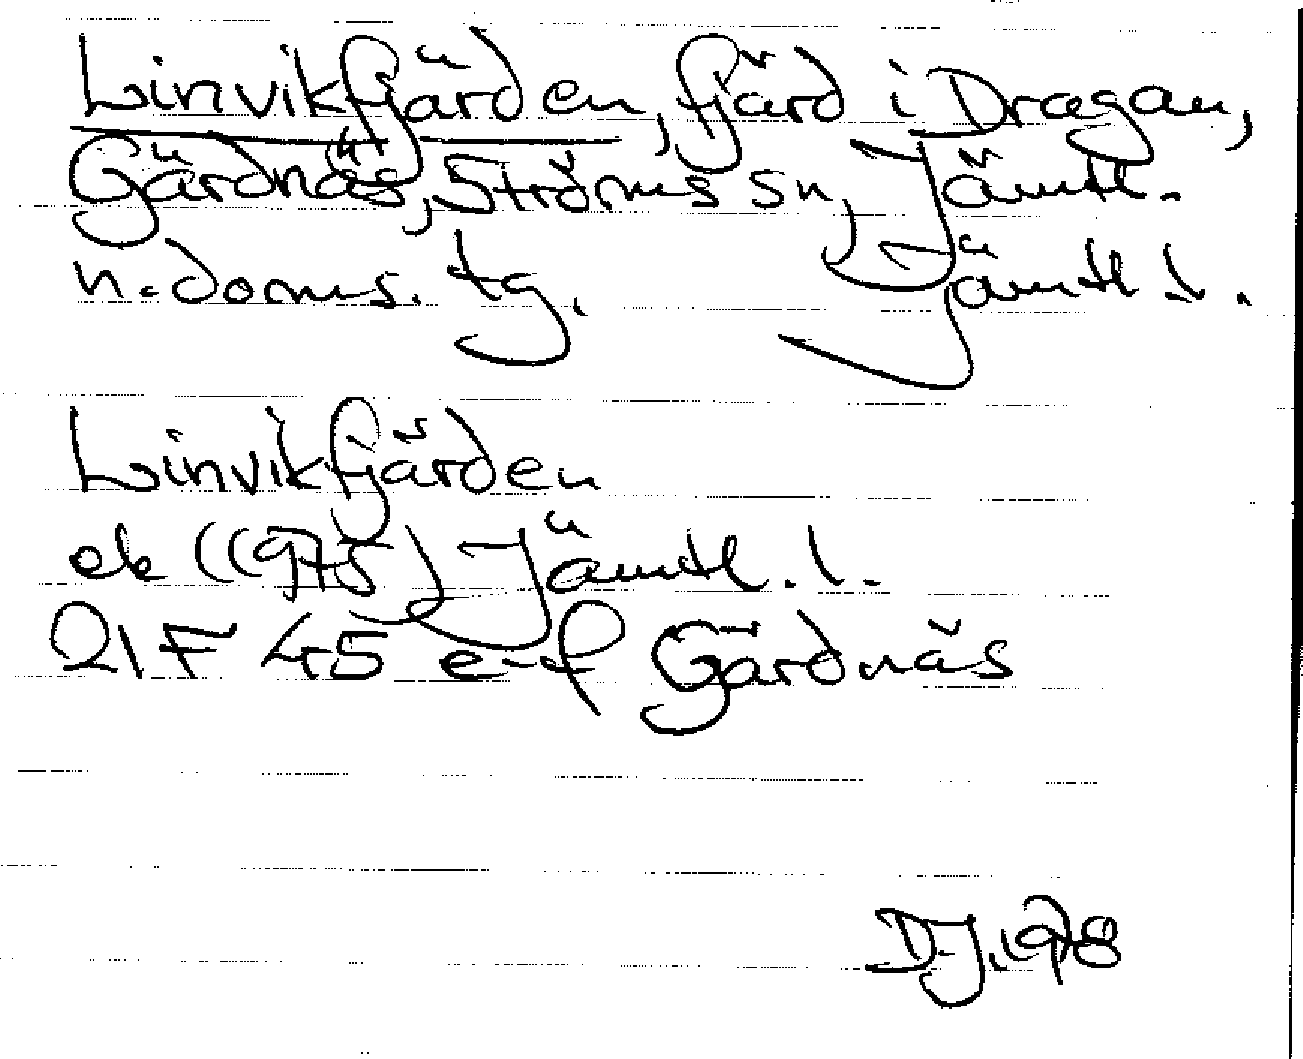 Linvikfjärden, fjärd i Dragan,
Gärdnäs, Ströms sn, Jämtl.
n. doms. tg. Jämtl. l.
Linvikfjärden
ek (1975) Jämtl. l.
21F 45 e-f Gärdnäs
D.J. 1978